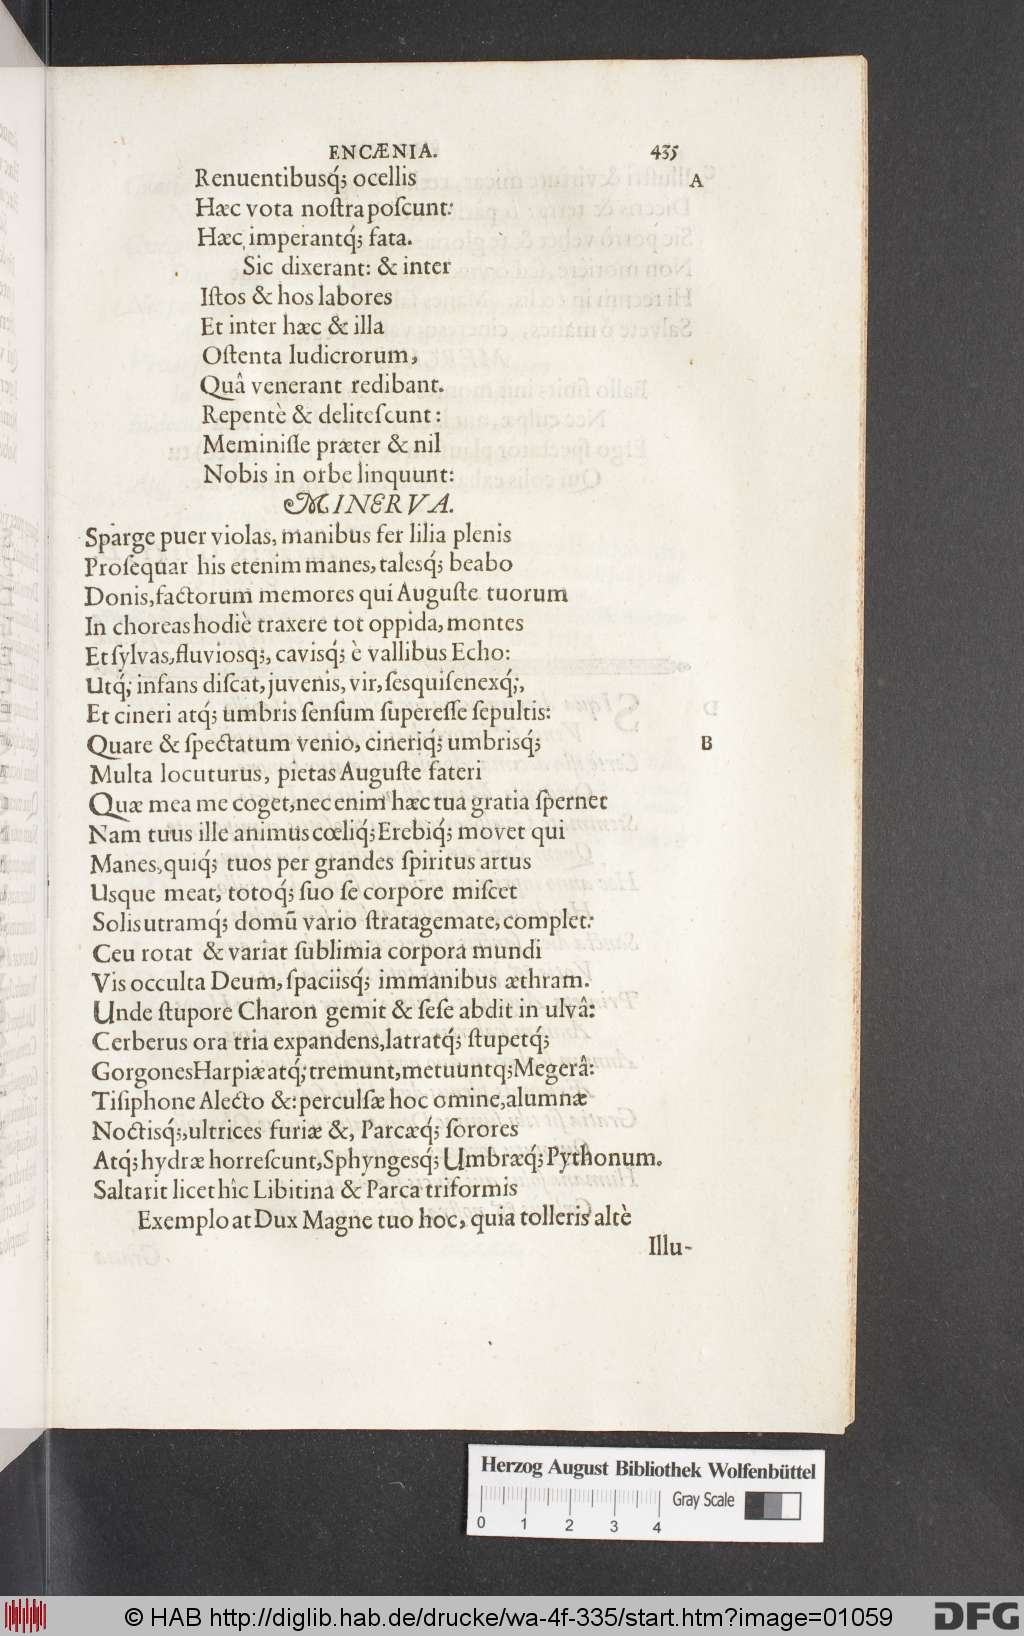 ENCÆNIA. 435
Renuentibusq́; ocellis A
Hæc vota noſtra poſcunt:
Hæc imperantq́; fata.
Sic dixerant: & inter
Iſtos & hos labores
Et inter hæc & illa
Oſtenta ludicrorum,
Quâ venerant redibant.
Repentè & deliteſcunt:
Meminiſſe præter & nil
Nobis in orbe linquunt:
MINERVA.
Sparge puer violas, manibus fer lilia plenis
Proſequar his etenim manes, talesq́; beabo
Donis, factorum memores qui Auguſte tuorum
In choreas hodiè traxere tot oppida, montes
Et ſylvas, fluviosq́;, cavisq́; è vallibus Echo:
Utq́; infans diſcat, juvenis, vir, ſesquiſenexq́;,
Et cineri atq́; umbris ſenſum ſupereſſe ſepultis:
Quare & ſpectatum venio, cineriq́; umbrisq́; B
Multa locuturus, pietas Auguſte fateri
Quæ mea me coget, nec enim hæc tua gratia ſpernet
Nam tuus ille animus cœliq́; Erebiq́; movet qui
Manes, quiq́; tuos per grandes ſpiritus artus
Usque meat, totoq́; ſuo ſe corpore miſcet
Solis utramq́; domū vario ſtratagemate, complet:
Ceu rotat & variat ſublimia corpora mundi
Vis occulta Deum, ſpaciisq́; immanibus æthram.
Unde ſtupore Charon gemit & ſeſe abdit in ulvâ:
Cerberus ora tria expandens, latratq́; ſtupetq́;
Gorgones Harpiæ atq́; tremunt, metuuntq; Megerâ:
Tiſiphone Alecto &: perculſæ hoc omine, alumnæ
Noctisq́;, ultrices furiæ &, Parcæq́; ſorores
Atq́; hydræ horreſcunt, Sphyngesq́; Umbræq́; Pythonum.
Saltarit licet hîc Libitina & Parca triformis
Exemplo at Dux Magne tuo hoc, quia tolleris altè
Illu-
Herzog August Bibliothek Wolfenbüttel
Gray Scale
0 1 2 3 4
© HAB http://diglib.hab.de/drucke/wa-4f-335/start.htm?image=01059
DFG